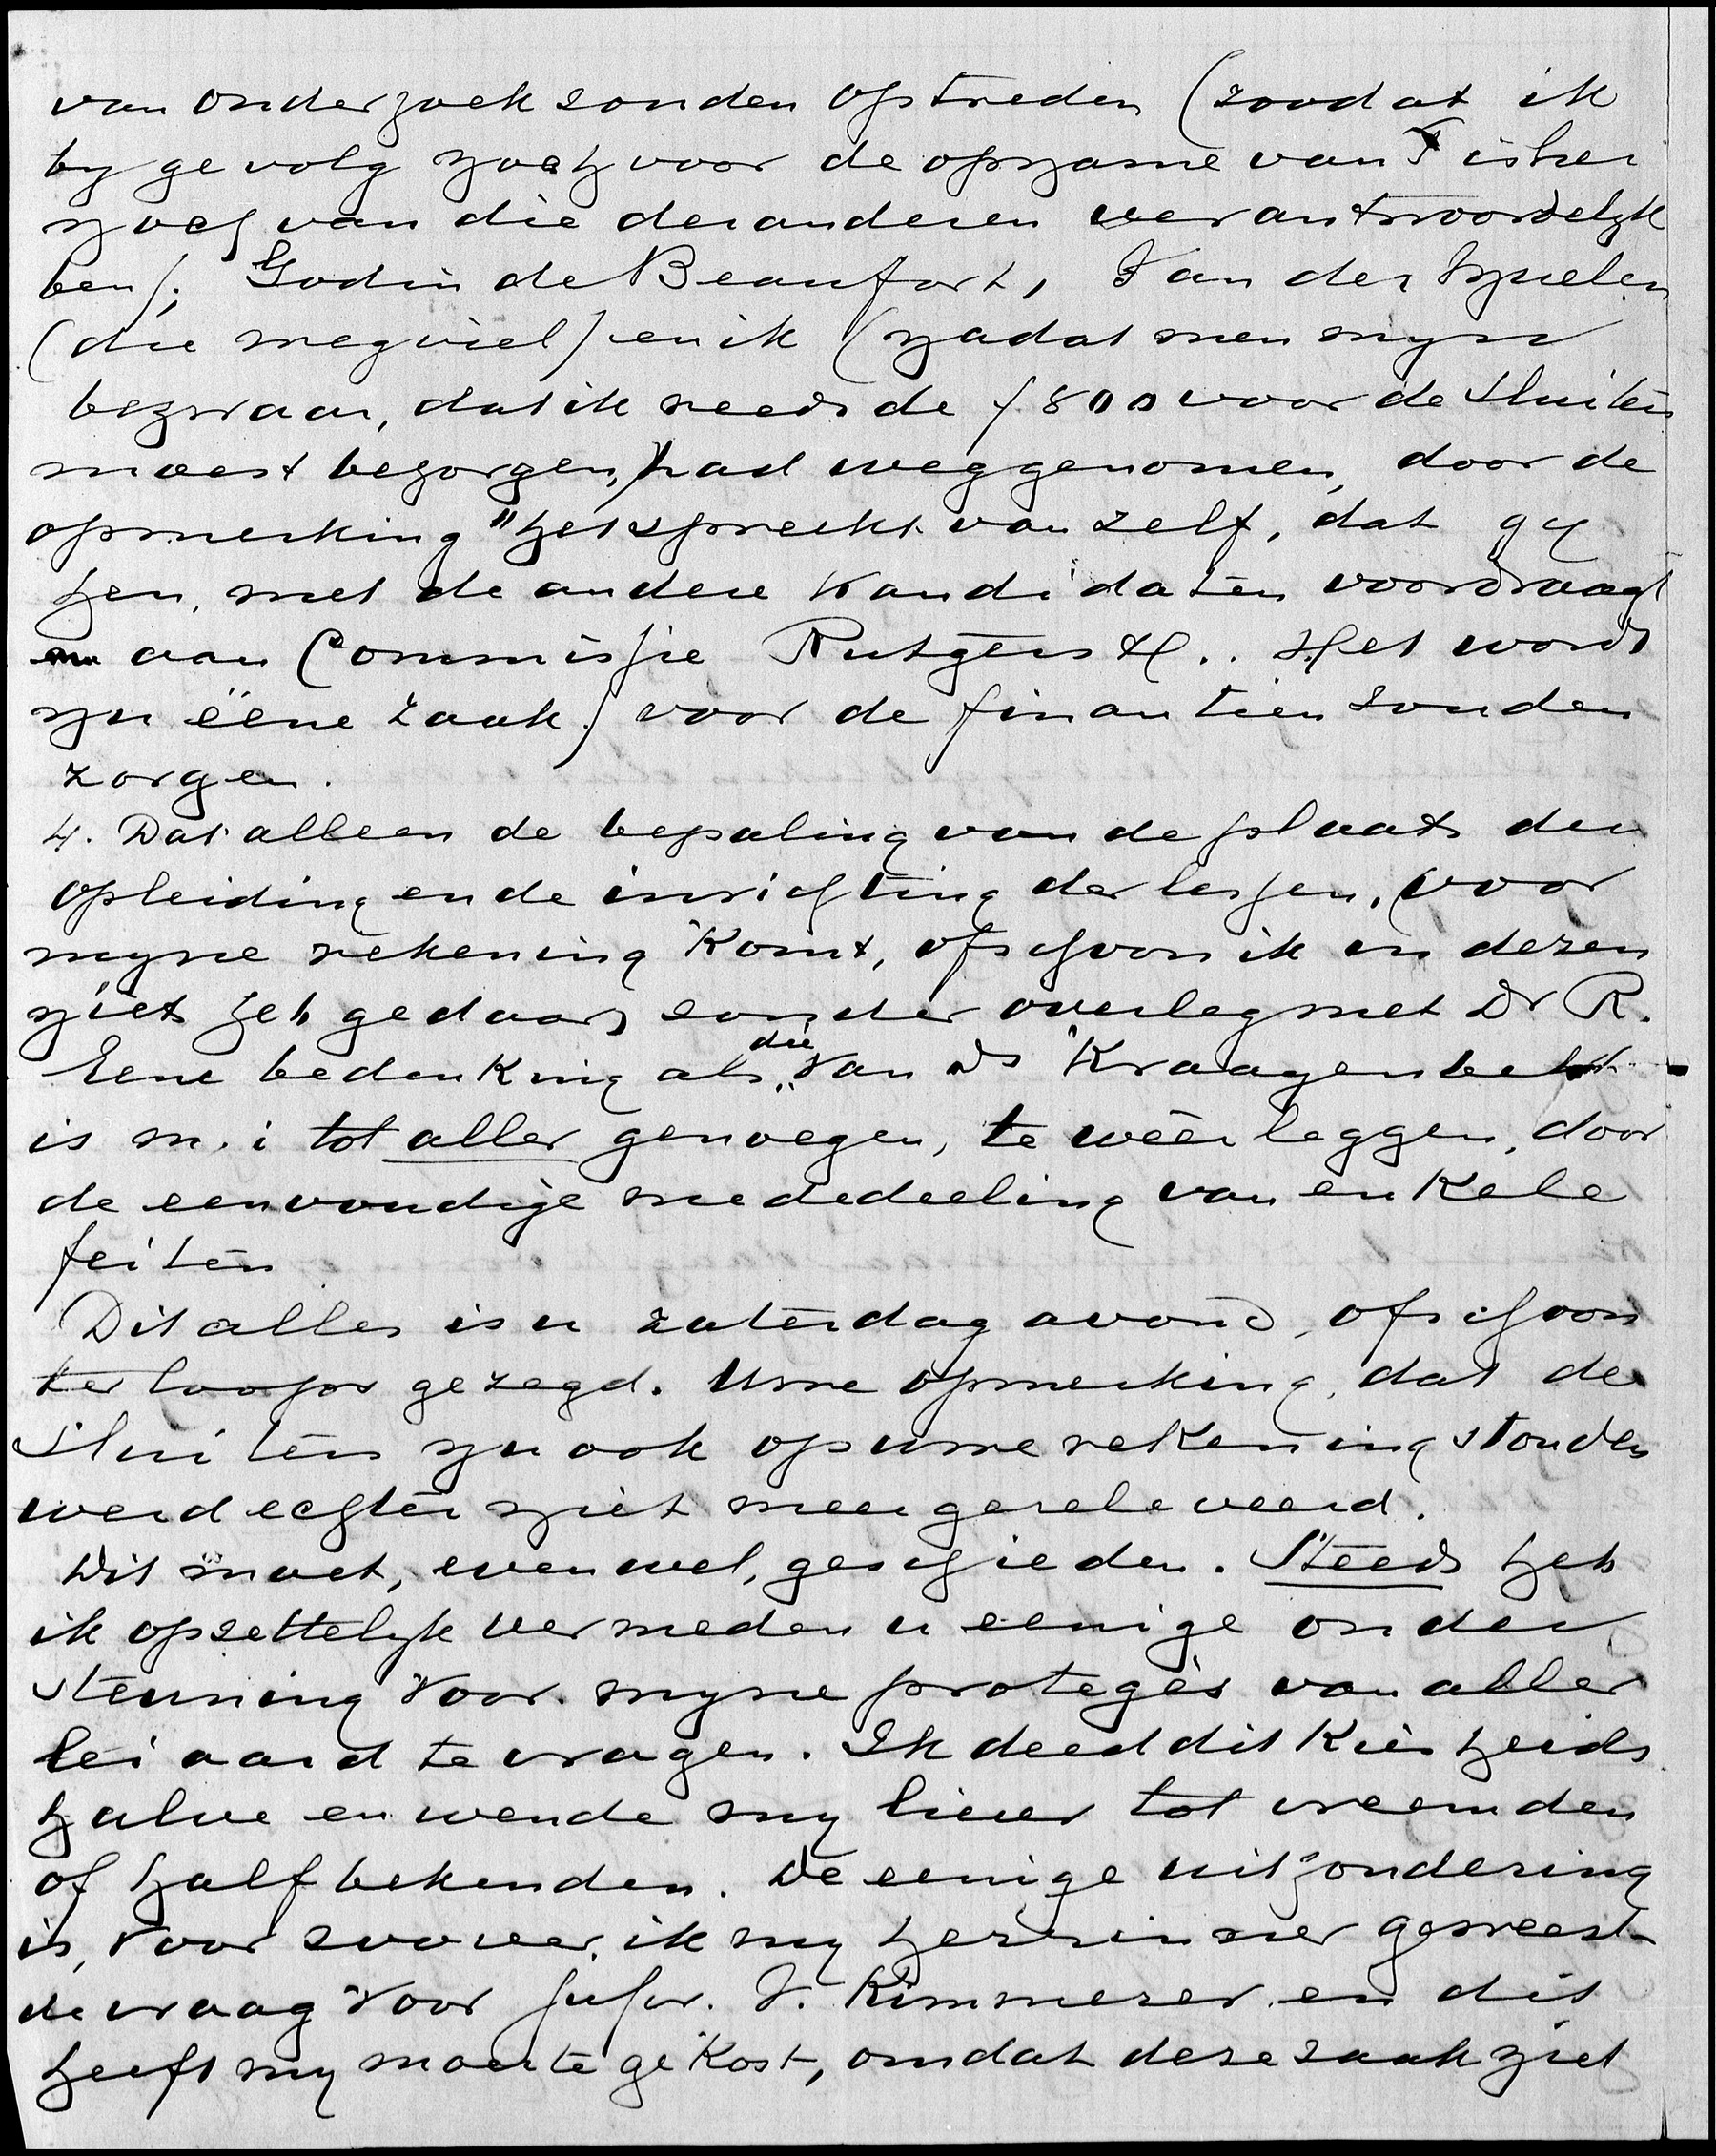 van onderzoek zouden optreden (zoodat ik
by gevolg noch voor de opname van Fisher
noch van die der anderen verantwoordelyk
ben). Godin de Beaufort, Van der
(die wegviel) en ik (nadat men myn
bezwaar, dat ik reeds de f. 800 voor de Sluiters
moest bezorgen, had weggenomen, door de
opmerking "het spreekt van zelf, dat gy
hen, met de andere Kandidaten voordraagt
aan Commissie Rutgers H.. Het wordt
nu ëëne zaak) voor de finantien zouden
zorgen.
4. Dat alleen de bepaling van de plaats der
opleiding en de inrichting der lessen, voor
myne rekening Komt, ofschoon ik in dezen
niets heb gedaan zonder overleg met Dr R.
Eene bedenKing als die van Ds Kraayenbelt
is m. i tot aller genoegen, te wêerleggen, door
de eenvoudige mededeeling van enKele
feiten
Dit alles is u zaterdag avond, ofschoon
ter loops gezegd. Uwe opmerking, dat de
Sluiters nu ook op uwe reKening stonden
werd echter niet meer gereleveerd.
Dit moet, evenwel, geschieden. Steeds heb
ik opzettelyk vermeden u eenige onder
steuning voor myne protegès van aller
lei aard te vragen. Ik deed dit Kiesheids
halve en wende my liever tot vreemden
of half bekenden. De eenige uitzondering
is, voor zoover ik my herinner geweest
de vraag voor Jufvr. J. Kimmerer en dit
heeft my moeite geKost, omdat deze zaak niet